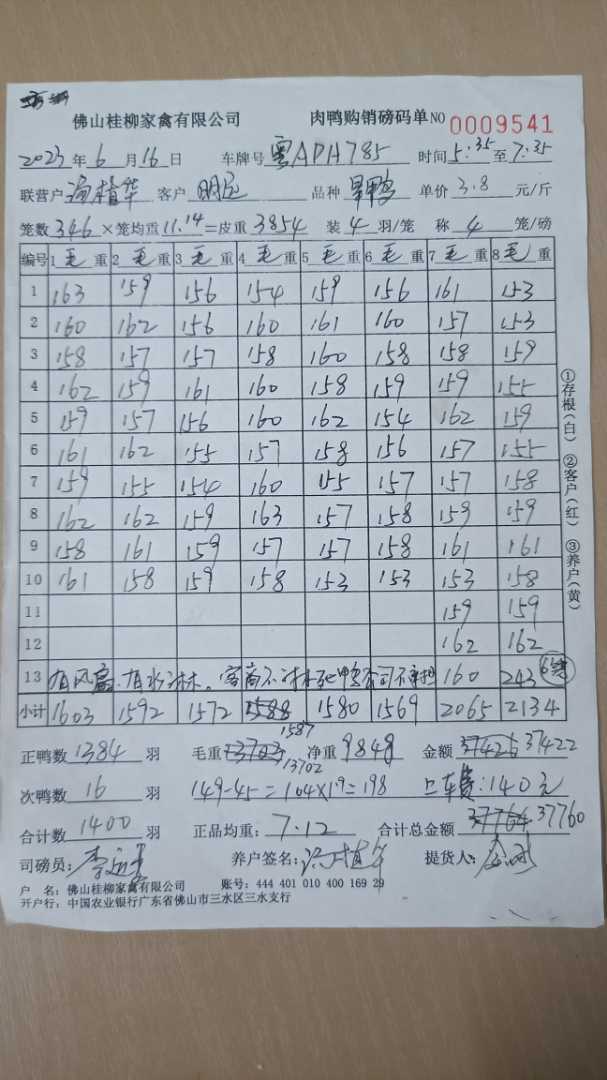 佛山桂柳家禽有限公司 肉鸭购销磅码单 NO 0009541
2023年6月16日 车牌号 粤APH785 时间5:35至7:35
联营户 植华 客户 品种 旱鸭 单价 3.8 元/斤
笼数346×笼均重11.14=皮重3854 装4羽/笼 称4笼/磅
编号 1毛重 2毛重 3毛重 4毛重 5毛重 6毛重 7毛重 8毛重
1 163 159 156 154 159 156 161 153
2 160 162 156 160 161 160 157 153
3 158 157 157 158 160 158 158 159
4 162 159 161 160 158 159 159 155
5 159 157 156 160 162 154 162 159
6 161 162 155 157 158 156 157 155
7 159 155 154 160 155 157 157 158
8 162 162 159 163 157 158 159 159
9 158 161 159 157 157 158 161 161
10 161 158 159 158 153 153 153 158
11 159 159
12 162 162
13 有风扇.有水淋. 客商不淋死鸭公司不承担 160 243 6笼
小计 1603 1592 1572 1588 1580 1569 2065 2134
1587
正鸭数1384羽 毛重13703 净重9848 金额37426 37422
13702
次鸭数16羽 149-45=104×1.9=198 上车费:140元
合计数1400羽 正品均重:7.12 合计总金额37764 37760
司磅员: 养户签名: 提货人:
户 名:佛山桂柳家禽有限公司 账号:444 401 010 400 169 29
开户行:中国农业银行广东省佛山市三水区三水支行
①存根(白) ②客户(红) ③养户(黄)